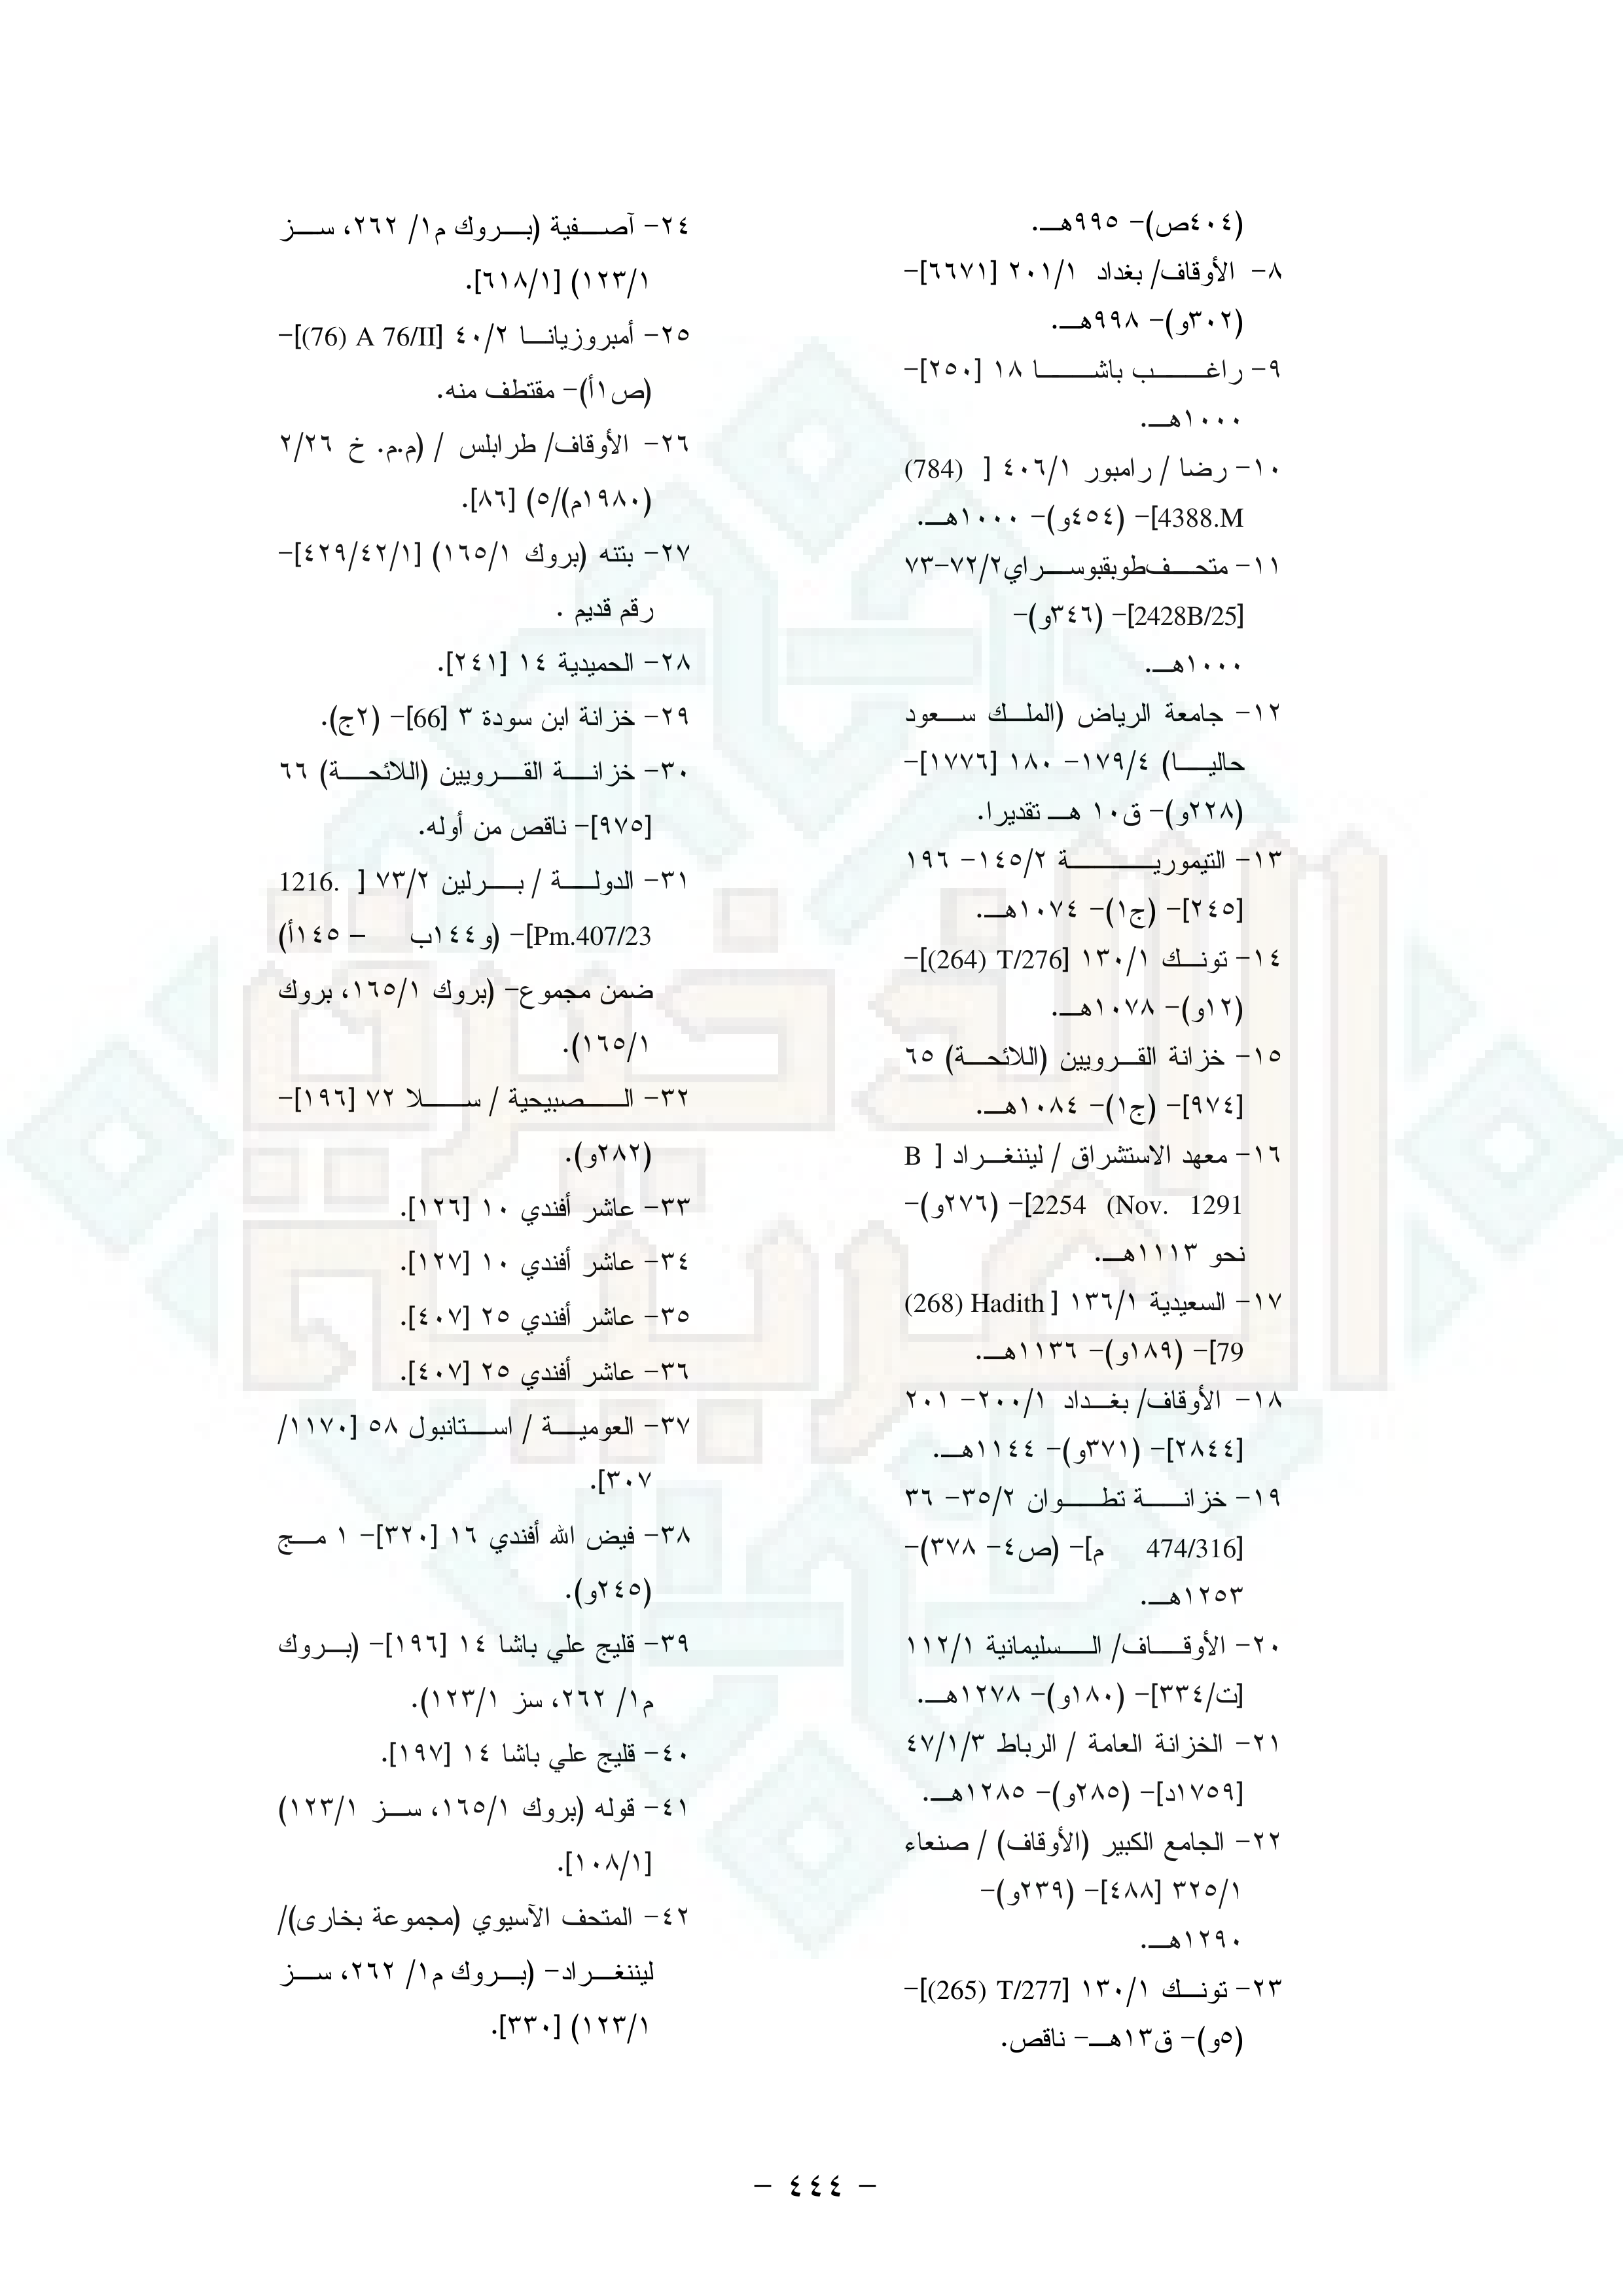 (٤٠٤ص)- ٩٩٥هـ.
٨- الأوقاف/ بغداد ٢٠١/١ [٦٦٧١]-
(٣٠٢و)- ٩٩٨هـ.
٩- راغب باشا ١٨ [٢٥٠]-
١٠٠٠هـ.
١٠- رضا / رامبور ٤٠٦/١ [ (784)
4388.M]- (٤٥٤و)- ١٠٠٠هـ.
١١- متحف طوبقبوسراي ٧٢/٢-٧٣
[2428B/25]- (٣٤٦و)-
١٠٠٠هـ.
١٢- جامعة الرياض (الملك سعود
حاليا) ١٧٩/٤- ١٨٠ [١٧٧٦]-
(٢٢٨و)- ق١٠ هـ تقديرا.
١٣- التيمورية ١٤٥/٢- ١٩٦
[٢٤٥]- (ج١)- ١٠٧٤هـ.
١٤- تونك ١٣٠/١ [(264) T/276]-
(١٢و)- ١٠٧٨هـ.
١٥- خزانة القرويين (اللائحة) ٦٥
[٩٧٤]- (ج١)- ١٠٨٤هـ.
١٦- معهد الاستشراق / ليننغراد [ B
2254 (Nov. 1291]- (٢٧٦و)-
نحو ١١١٣هـ.
١٧- السعيدية ١٣٦/١ [ (268) Hadith
79]- (١٨٩و)- ١١٣٦هـ.
١٨- الأوقاف/ بغداد ٢٠٠/١- ٢٠١
[٢٨٤٤]- (٣٧١و)- ١١٤٤هـ.
١٩- خزانة تطوان ٣٥/٢- ٣٦
[474/316 م]- (ص٤- ٣٧٨)-
١٢٥٣هـ.
٢٠- الأوقاف/ السليمانية ١١٢/١
[ت/٣٣٤]- (١٨٠و)- ١٢٧٨هـ.
٢١- الخزانة العامة / الرباط ٤٧/١/٣
[١٧٥٩د]- (٢٨٥و)- ١٢٨٥هـ.
٢٢- الجامع الكبير (الأوقاف) / صنعاء
٣٢٥/١ [٤٨٨]- (٢٣٩و)-
١٢٩٠هـ.
٢٣- تونك ١٣٠/١ [(265) T/277]-
(٥و)- ق١٣هـ- ناقص.
٢٤- آصفية (بروك م١/ ٢٦٢، سز
١٢٣/١) [٦١٨/١].
٢٥- أمبروزيانا ٤٠/٢ [(76) A 76/II]-
(ص١أ)- مقتطف منه.
٢٦- الأوقاف/ طرابلس / (م.م. خ ٢/٢٦
(١٩٨٠م)/٥) [٨٦].
٢٧- بتنه (بروك ١٦٥/١) [٤٢٩/٤٢/١]-
رقم قديم .
٢٨- الحميدية ١٤ [٢٤١].
٢٩- خزانة ابن سودة ٣ [66]- (٢ج).
٣٠- خزانة القرويين (اللائحة) ٦٦
[٩٧٥]- ناقص من أوله.
٣١- الدولة / برلين ٧٣/٢ [ 1216.
Pm.407/23]- (و١٤٤ب – ١٤٥أ)
ضمن مجموع- (بروك ١٦٥/١، بروك
١٦٥/١).
٣٢- الصبيحية / سلا ٧٢ [١٩٦]-
(٢٨٢و).
٣٣- عاشر أفندي ١٠ [١٢٦].
٣٤- عاشر أفندي ١٠ [١٢٧].
٣٥- عاشر أفندي ٢٥ [٤٠٧].
٣٦- عاشر أفندي ٢٥ [٤٠٧].
٣٧- العومية / استانبول ٥٨ [١١٧٠/
٣٠٧].
٣٨- فيض الله أفندي ١٦ [٣٢٠]- ١ مج
(٢٤٥و).
٣٩- قليج علي باشا ١٤ [١٩٦]- (بروك
م١/ ٢٦٢، سز ١٢٣/١).
٤٠- قليج علي باشا ١٤ [١٩٧].
٤١- قوله (بروك ١٦٥/١، سز ١٢٣/١)
[١٠٨/١].
٤٢- المتحف الآسيوي (مجموعة بخارى)/
ليننغراد- (بروك م١/ ٢٦٢، سز
١٢٣/١) [٣٣٠].
- ٤٤٤ -